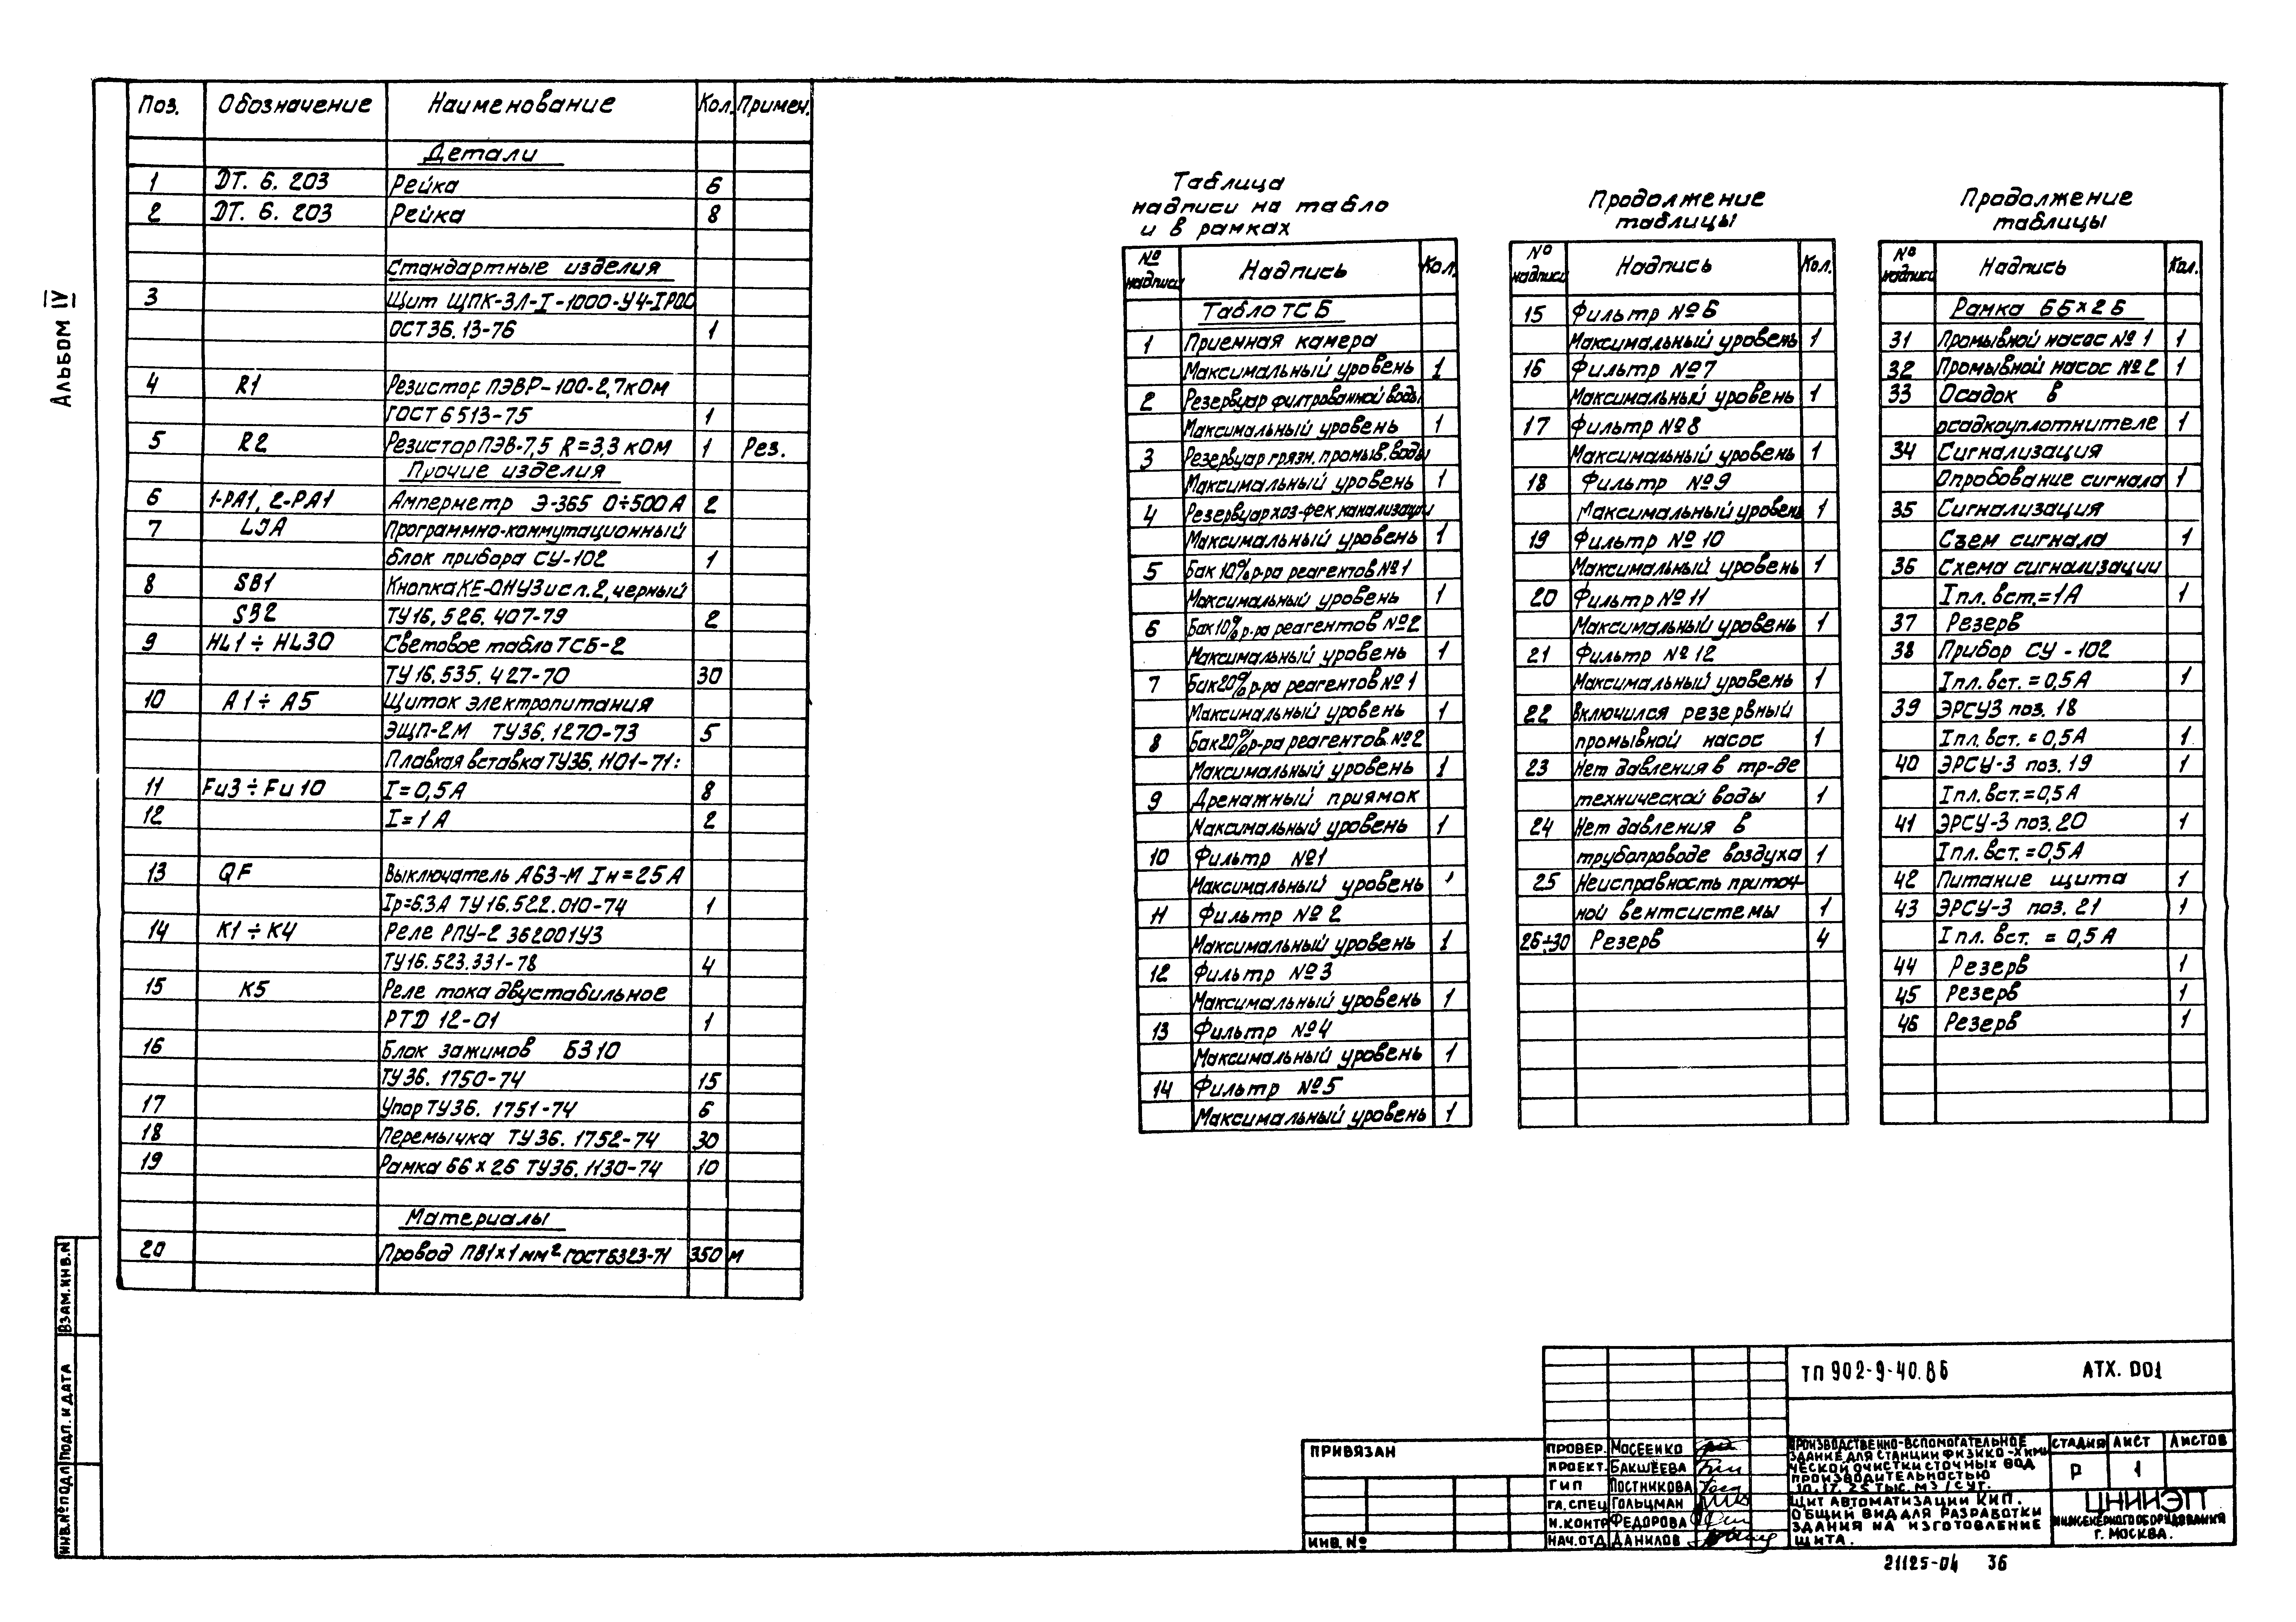 Альбом IV
Поз. Обозначение Наименование Кол. Примеч.
Детали
1 ДТ. 6. 203 Рейка 6
2 ДТ. 6. 203 Рейка 8
Стандартные изделия
3 Щит ЩПК-ЗЛ-I-1000-У4-IP00
ОСТ 36.13-76 1
4 R1 Резистор ПЭВР-100-2,7кОм
ГОСТ 6513-75 1
5 R2 Резистор ПЭВ-7,5 R=3,3 кОм 1 Рез.
Прочие изделия
6 1-РА1, 2-РА1 Амперметр Э-365 0÷500 А 2
7 Программно-коммутационный
блок прибора СУ-102 1
8 SB1 Кнопка КЕ-011У3 исп.2, черный
SB2 ТУ16.526.407-79 2
9 HL1÷HL30 Световое табло ТСБ-2
ТУ16.535.427-70 30
10 А1÷А5 Щиток электропитания
ЭЩП-2М ТУ36.1270-73 5
Плавкая вставка ТУ36.1101-71:
11 Fu3÷Fu10 I=0,5А 8
12 I=1А 2
13 QF Выключатель А63-М Iн=25А
Iр=6.3А ТУ16.522.010-74 1
14 К1÷К4 Реле РПУ-2 362001У3
ТУ16.523.331-78 4
15 К5 Реле тока двустабильное
РТД 12-01 1
16 Блок зажимов БЗ10
ТУ36.1750-74 15
17 Упор ТУ36.1751-74 6
18 Перемычка ТУ36.1752-74 30
19 Рамка 66×26 ТУ36.1130-74 10
Материалы
20 Провод ПВ1×1мм² ГОСТ6323-71 350 м
Таблица
надписи на табло
и в рамках
№ надписи Надпись Кол.
Табло ТСБ
1 Приемная камера
Максимальный уровень 1
2 Резервуар фильтрованной воды
Максимальный уровень 1
3 Резервуар грязн. промыв. воды
Максимальный уровень 1
4 Резервуар хоз-фек. канализации
Максимальный уровень 1
5 Бак 10% р-ра реагентов №1
Максимальный уровень 1
6 Бак 10% р-ра реагентов №2
Максимальный уровень 1
7 Бак 20% р-ра реагентов №1
Максимальный уровень 1
8 Бак 20% р-ра реагентов №2
Максимальный уровень 1
9 Дренажный приямок
Максимальный уровень 1
10 Фильтр №1
Максимальный уровень 1
11 Фильтр №2
Максимальный уровень 1
12 Фильтр №3
Максимальный уровень 1
13 Фильтр №4
Максимальный уровень 1
14 Фильтр №5
Максимальный уровень 1
Продолжение
таблицы
№ надписи Надпись Кол.
15 Фильтр №6
Максимальный уровень 1
16 Фильтр №7
Максимальный уровень 1
17 Фильтр №8
Максимальный уровень 1
18 Фильтр №9
Максимальный уровень 1
19 Фильтр №10
Максимальный уровень 1
20 Фильтр №11
Максимальный уровень 1
21 Фильтр №12
Максимальный уровень 1
22 Включился резервный
промывной насос 1
23 Нет давления в тр-де
технической воды 1
24 Нет давления в
трубопроводе воздуха 1
25 Неисправность приточ-
ной вентсистемы 1
26÷30 Резерв 4
Продолжение
таблицы
№ надписи Надпись Кол.
Рамка 66×26
31 Промывной насос №1 1
32 Промывной насос №2 1
33 Осадок в
осадкоуплотнителе 1
34 Сигнализация
Опробование сигнала 1
35 Сигнализация
Съем сигнала 1
36 Схема сигнализации
Iпл. вст.=1А 1
37 Резерв
38 Прибор СУ-102
Iпл. вст.=0,5А 1
39 ЭРСУ3 поз. 18
Iпл. вст.=0,5А 1
40 ЭРСУ-3 поз. 19 1
Iпл. вст.=0,5А
41 ЭРСУ-3 поз. 20 1
Iпл. вст.=0,5А
42 Питание щита 1
43 ЭРСУ-3 поз. 21 1
Iпл. вст.=0,5А
44 Резерв 1
45 Резерв 1
46 Резерв 1
ИНВ.№ПОДЛ ПОДП. И ДАТА ВЗАМ.ИНВ.№
ПРИВЯЗАН
ИНВ. №
ТП 902-9-40.86 АТХ. D01
ПРОВЕР. МОСЕЕНКО
ПРОЕКТ. БАКШЕЕВА
ГИП ПОСТНИКОВА
ГЛ.СПЕЦ ГОЛЬЦМАН
Н.КОНТР ФЕДОРОВА
НАЧ.ОТД ДАНИЛОВ
ПРОИЗВОДСТВЕННО-ВСПОМОГАТЕЛЬНОЕ
ЗДАНИЕ ДЛЯ СТАНЦИИ ФИЗИКО-ХИМИ
ЧЕСКОЙ ОЧИСТКИ СТОЧНЫХ ВОД
ПРОИЗВОДИТЕЛЬНОСТЬЮ
10, 17, 25 ТЫС. М3/СУТ.
ЩИТ АВТОМАТИЗАЦИИ КИП.
ОБЩИЙ ВИД ДЛЯ РАЗРАБОТКИ
ЗДАНИЯ НА ИЗГОТОВЛЕНИЕ
ЩИТА.
СТАДИЯ ЛИСТ ЛИСТОВ
Р 1
ЦНИИЭП
ИНЖЕНЕРНОГО ОБОРУДОВАНИЯ
Г. МОСКВА.
21125-04 36